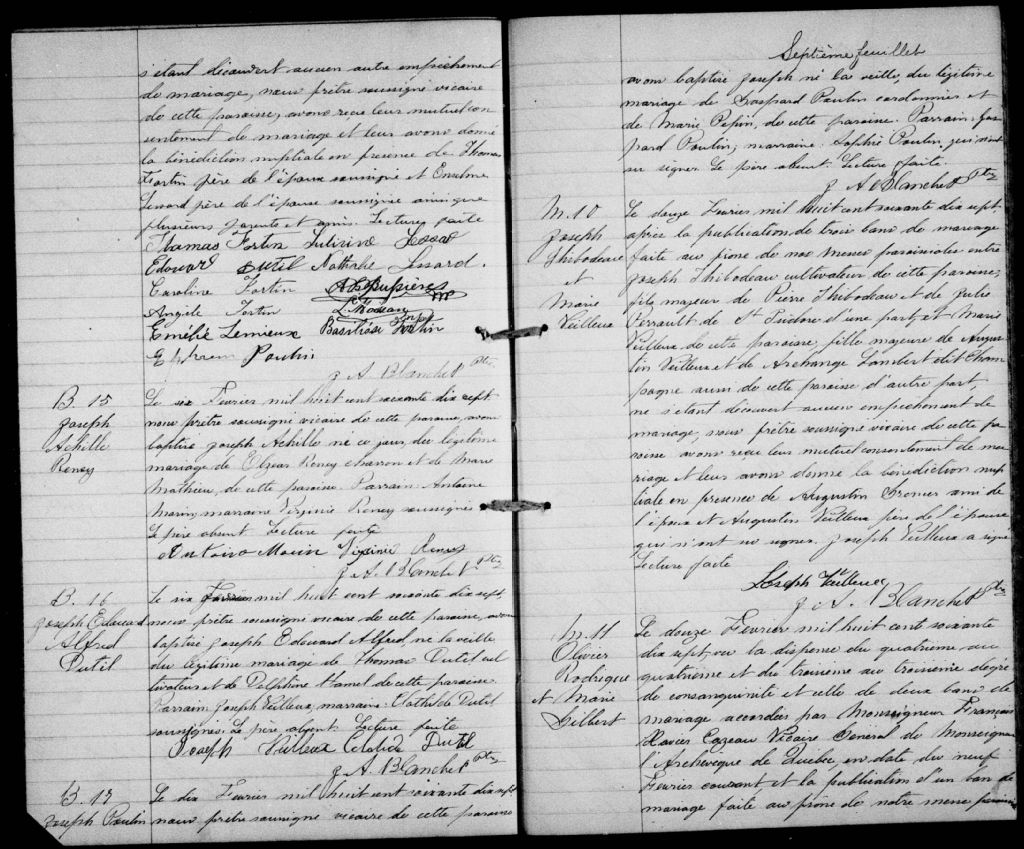 s'étant découvert aucun autre empêchement
de mariage, nous prêtre soussigné vicaire
de cette paroisse, avons reçu leur mutuel con
sentement de mariage et leur avons donné
la bénédiction nuptiale en présence de Thomas
Fortin père de l'époux soussigné et Enselme
Lessard père de l'épouse soussigné ainsi que
plusieurs parents et amis. Lecture faite
Thomas Fortin Lessard
Edouard Dutil Nathalie Lessard.
Caroline Fortin
Angèle Fortin
Emélie Lemieux Fortin
Ephrem Poulin
J A. Blanchet Ptre
B. 15
Joseph
Achille
Roney
Le six Février mil huit cent soixante dix sept
nous prêtre soussigné vicaire de cette paroisse, avons
baptisé Joseph Achille né ce jour, du légitime
mariage de Elzear Roney charron et de Marie
Mathieu, de cette paroisse. Parrain: Antoine
Morin, marraine Virginie Roney soussignés
Le père absent Lecture faite
Antoine Morin Virginie Roney
J A. Blanchet Ptre
B. 16
Joseph Edouard
Alfred
Dutil
Le six Février mil huit cent soixante dix sept,
nous prêtre soussigné vicaire de cette paroisse, avons
baptisé Joseph Edouard Alfred, né la veille
du légitime mariage de Thomas Dutil cul
tivateur et de Delphine Hamel de cette paroisse.
Parrain: Joseph Veilleux, marraine: Clothilde Dutil
soussignés. Le père absent. Lecture faite
Joseph Veilleux Dutil
J A. Blanchet Ptre
B. 17
Joseph Poulin
Le dix Février mil huit cent soixante dix sept
nous prêtre soussigné vicaire de cette paroisse
Septième feuillet
avons baptisé Joseph né la veille, du légitime
mariage de Gaspard Poulin cordonnier et
de Marie Pepin, de cette paroisse. Parrain: Gas
pard Poulin; marraine: Sophie Poulin qui n'ont
su signer. Le père absent. Lecture faite.
J A Blanchet Ptre
M. 10
Joseph
Thibodeau
et
Marie
Veilleux
Le douze Février mil huit cent soixante dix sept,
après la publication de trois bans de mariage
faite au prône de nos messes paroissiales entre
Joseph Thibodeau cultivateur de cette paroisse,
fils majeur de Pierre Thibodeau et de Julie
Perrault de St Isidore d'une part, et Marie
Veilleux de cette paroisse, fille majeure de Augus
tin Veilleux et de Archange Lambert dit Cham
pagne aussi de cette paroisse d'autre part,
ne s'étant découvert aucun empêchement de
mariage, nous prêtre soussigné vicaire de cette pa
roisse avons reçu leur mutuel consentement de ma
riage et leur avons donné la bénédiction nup
tiale en présence de Augustin Grenier ami de
l'époux et Augustin Veilleux père de l'épouse
qui n'ont su signer. Joseph Veilleux a signé
Lecture faite
Joseph Veilleux
J A. Blanchet Ptre
M. 11
Olivier
Rodrigue
et Marie
Gilbert
Le douze Février mil huit cent soixante
dix sept, vu la dispense du quatrième au
quatrième et du troisième au troisième degré
de consanguinité et celle de deux bans de
mariage accordées par Monseigneur François
Xavier Cazeau Vicaire Général de Monseigneur
l'Archevêque de Québec, en date du neuf
Février courant et la publication d'un ban de
mariage faite au prône de notre messe